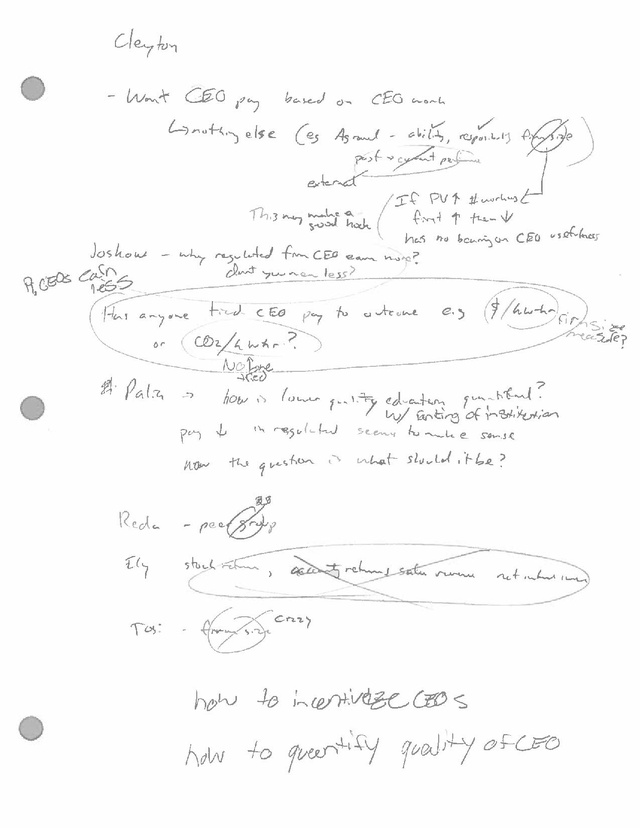 Cleyton
- Want CEO pay based on CEO work
↳ nothing else (eg Agrawal - ability, responsibility firm size)
past current
external
This may make a good hook
If PV ↑ # workers
first ↑ then ↓
has no bearing on CEO usefulness
Joskow - why regulated firm CEO earn more?
don't you mean less?
CEOs earn less
Has anyone tied CEO pay to outcome e.g $/kwhr
firm size measure?
or CO2/kwhr?
No one
tied
Palia → how is lower quality education quantified?
w/ ranking of institution
pay ↓ in regulated seems to make sense
now the question is what should it be?
Reda - peer group
Ely stock return, returns sales revenue net
Tosi - firm size crazy
how to incentivize CEOs
how to quantify quality of CEO